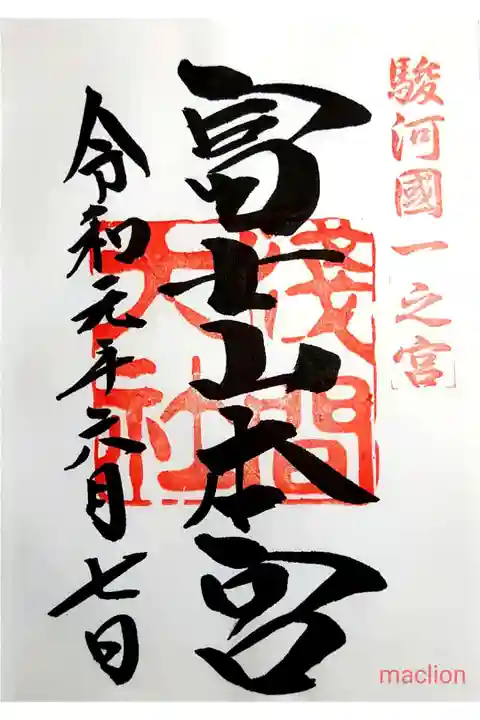 駿河國一之宮
冨士山本宮
淺間
大社
令和元年六月七日
maclion